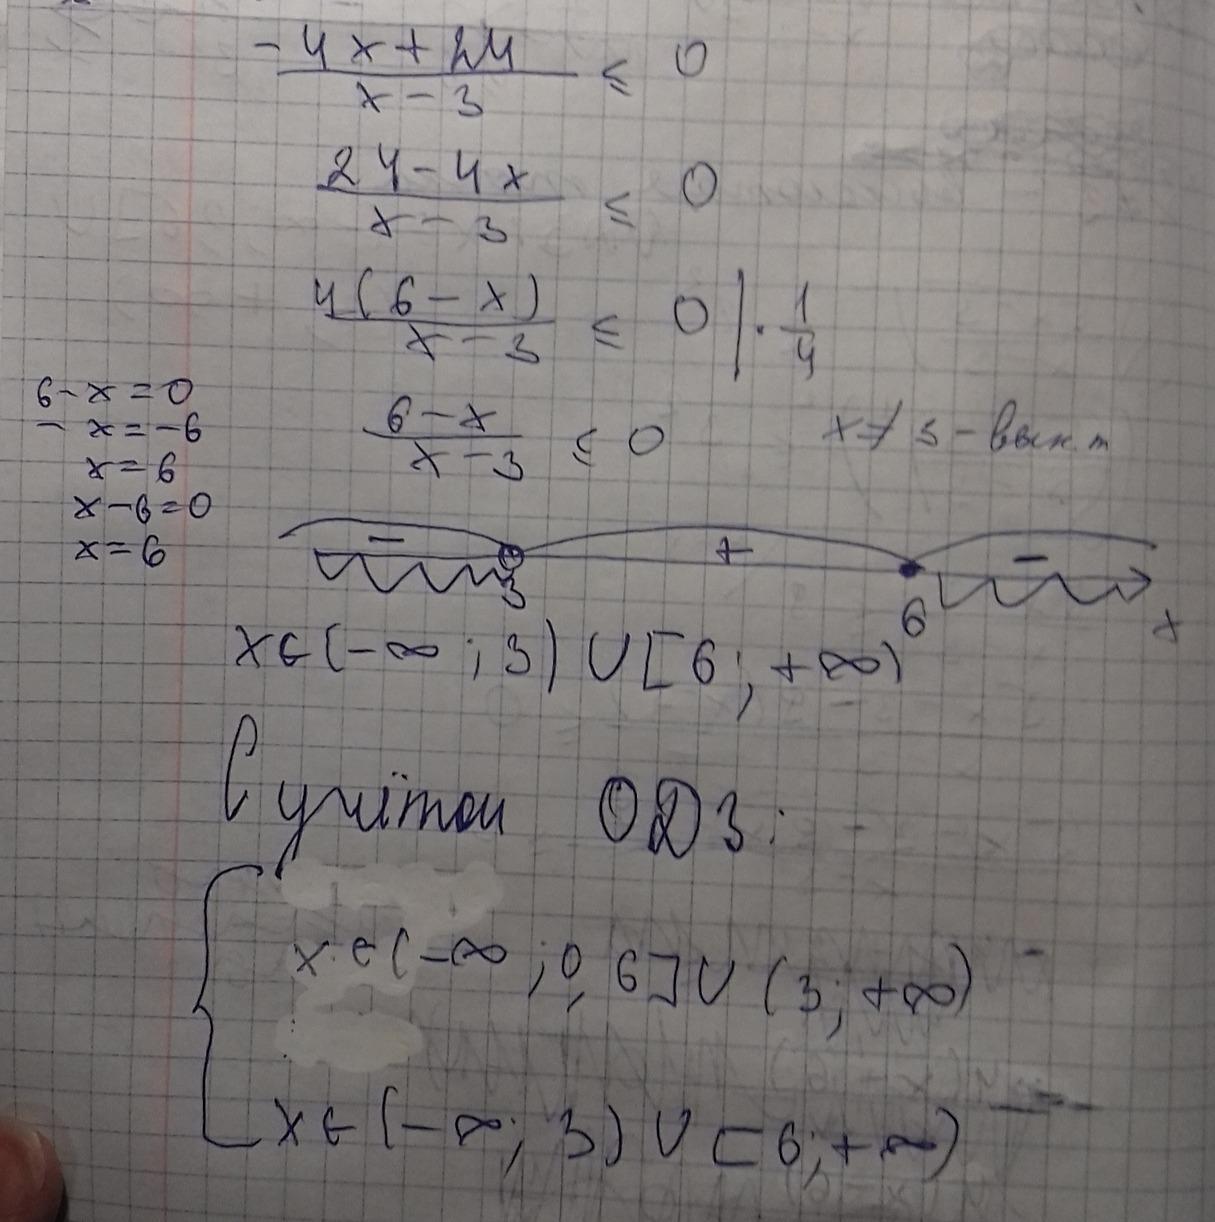 -4x+24 / x-3 ≤ 0
24-4x / x-3 ≤ 0
4(6-x) / x-3 ≤ 0 | · 1/4
6-x=0
-x=-6
x=6
x-6=0
x=6
6-x / x-3 ≤ 0
x≠3 - выкл.т
- + -
3 6 x
x∈(-∞;3)∪[6;+∞)
С учётом ОДЗ:
x∈(-∞;0,6]∪(3;+∞)
x∈(-∞;3)∪[6;+∞)